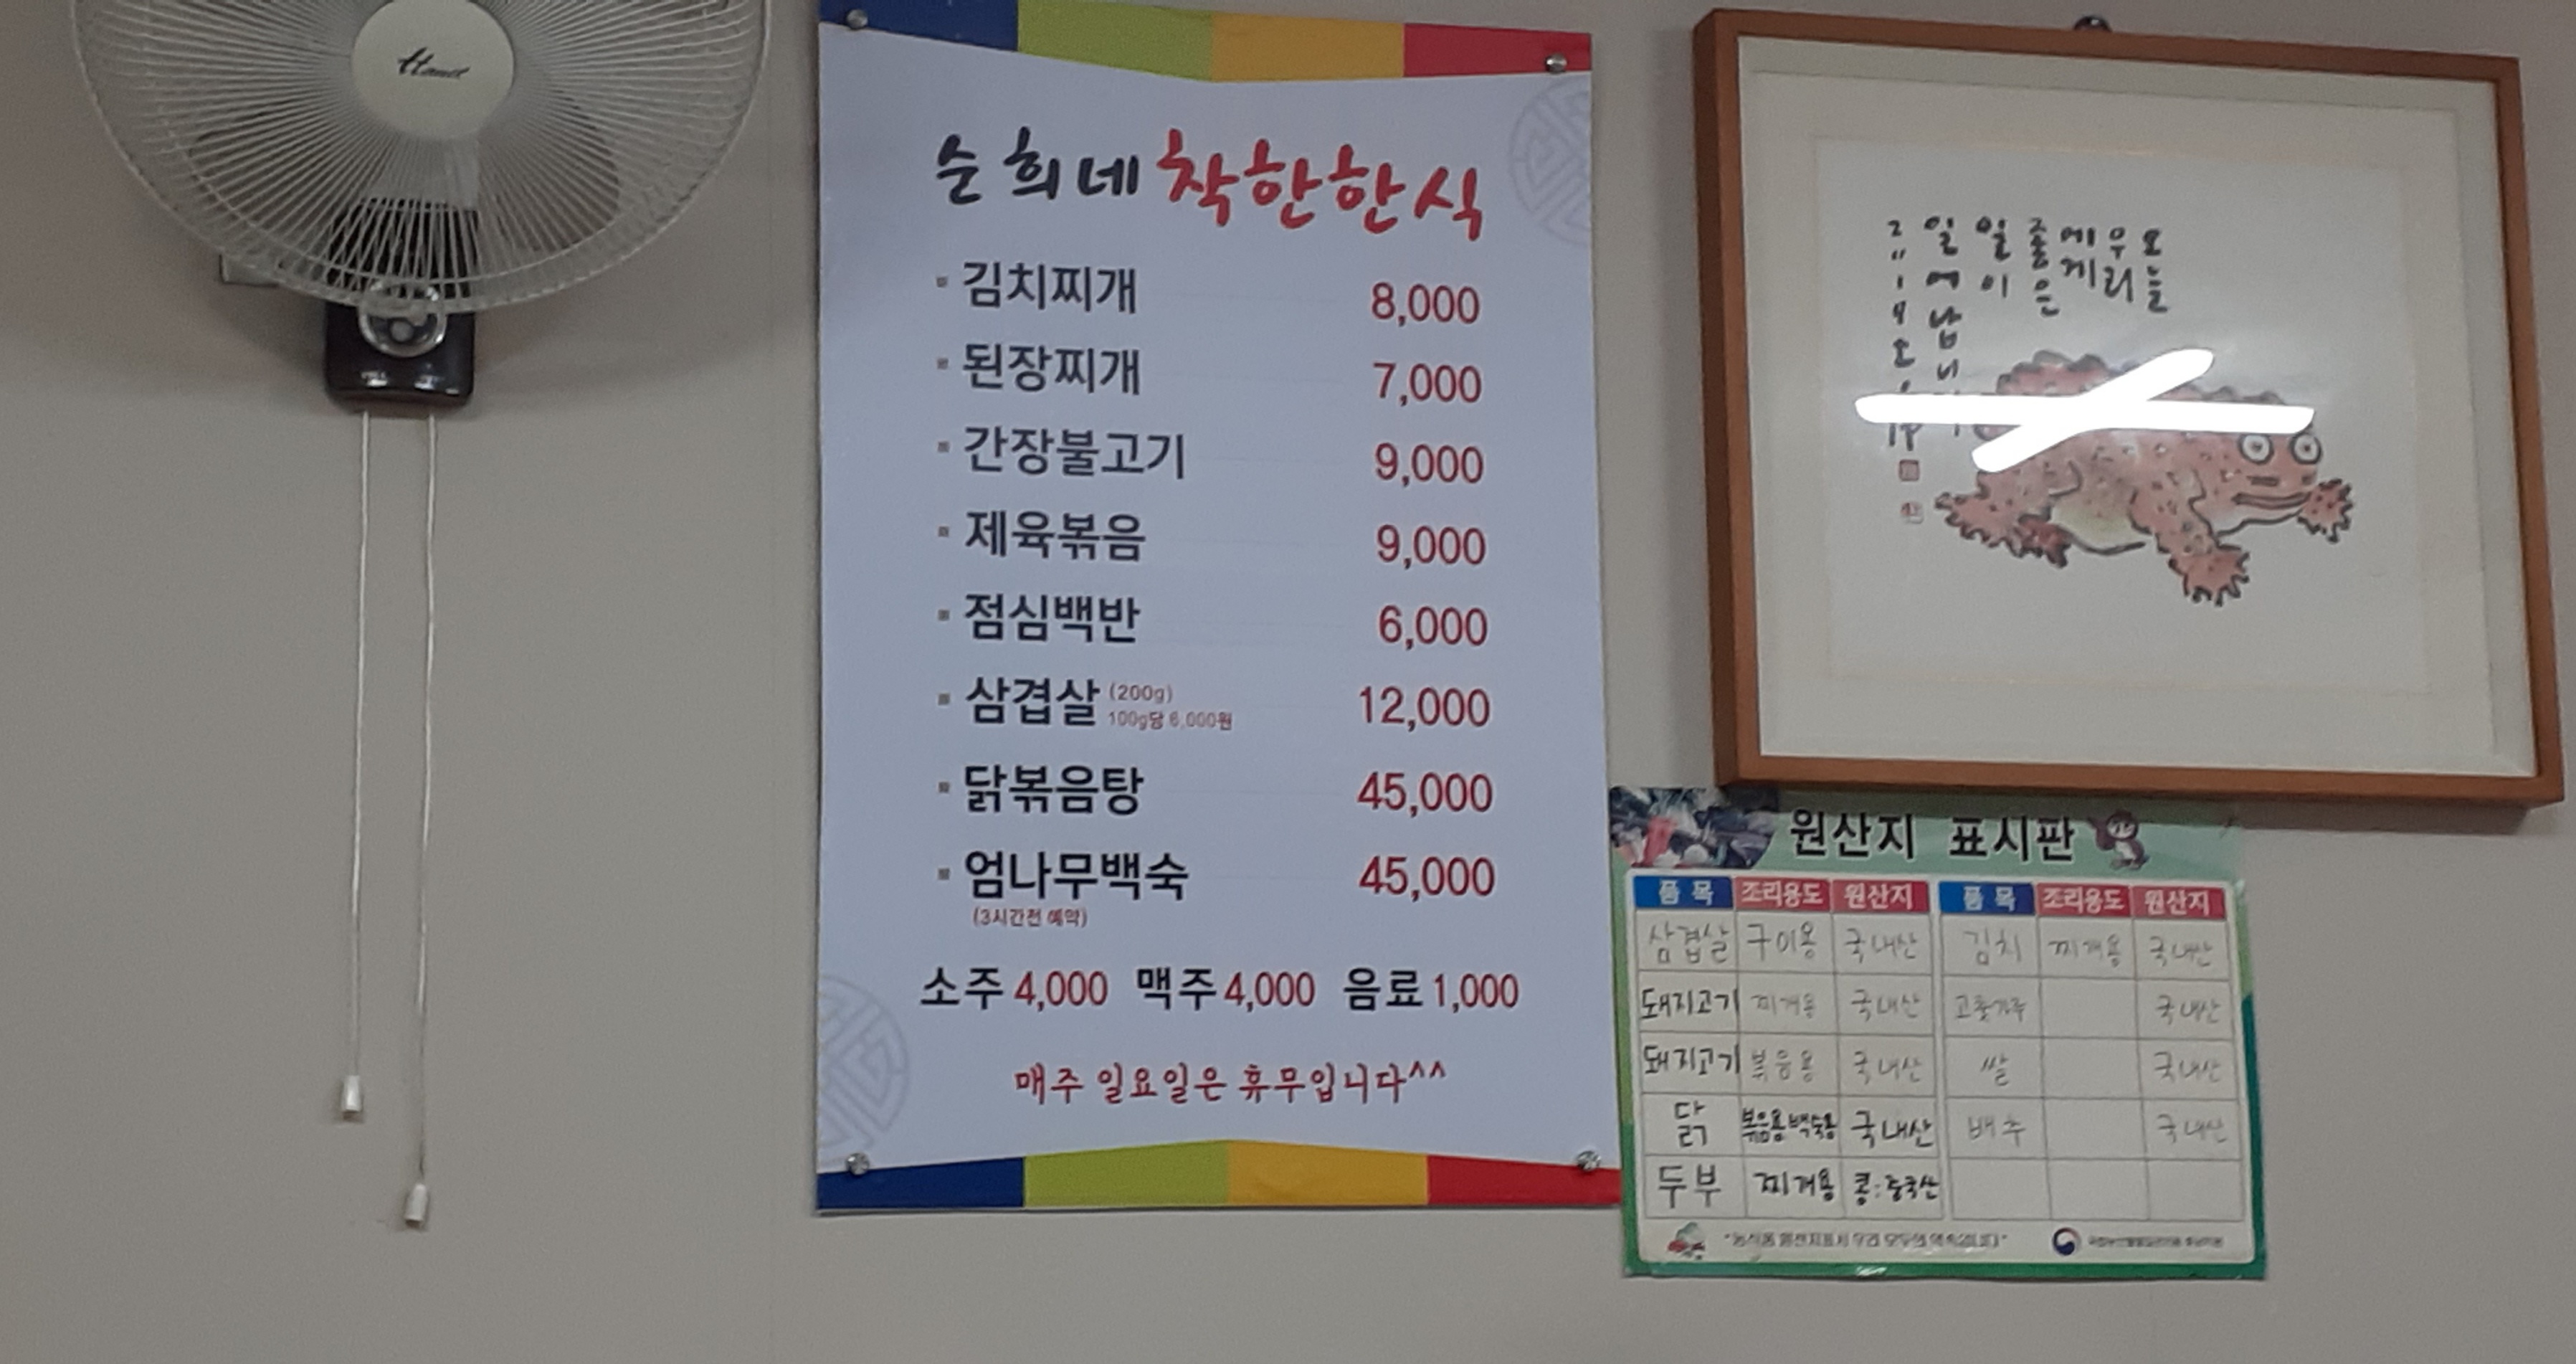 Hanil
순희네 착한한식
김치찌개 8,000
된장찌개 7,000
간장불고기 9,000
제육볶음 9,000
점심백반 6,000
삼겹살 (200g) 12,000
100g당 6,000원
닭볶음탕 45,000
엄나무백숙 45,000
(3시간전 예약)
소주 4,000 맥주 4,000 음료 1,000
매주 일요일은 휴무입니다^^
오늘
우리
에게
좋은
일이
일어납니다
원산지 표시판
품목 조리용도 원산지 품목 조리용도 원산지
삼겹살 구이용 국내산 김치 찌개용 국내산
돼지고기 찌개용 국내산 고춧가루 국내산
돼지고기 볶음용 국내산 쌀 국내산
닭 볶음용 백숙용 국내산 배추 국내산
두부 찌개용 콩:중국산